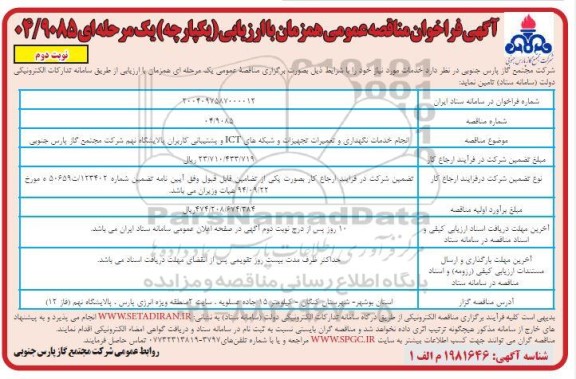 آگهی فراخوان مناقصه عمومی همزمان با ارزیابی (یکپارچه) یک مرحله ای ۰۴/۹۰۸۵
نوبت دوم
شرکت مجتمع گاز پارس جنوبی در نظر دارد خدمات مورد نیاز خود را با شرایط ذیل بصورت برگزاری مناقصه عمومی یک مرحله ای همزمان با ارزیابی از طریق سامانه تدارکات الکترونیکی
دولت (سامانه ستاد) تامین نماید:
شماره فراخوان در سامانه ستاد ایران ۲۰۰۴۰۹۷۵۸۷۰۰۰۰۱۲
شماره مناقصه ۰۴/۹۰۸۵
موضوع مناقصه انجام خدمات نگهداری و تعمیرات تجهیزات و شبکه های ICT و پشتیبانی کاربران پالایشگاه نهم شرکت مجتمع گاز پارس جنوبی
مبلغ تضمین شرکت در فرآیند ارجاع کار ۲۳/۷۱۰/۴۳۳/۷۱۹ ریال
نوع تضمین شرکت درفرایند ارجاع کار تضمین شرکت در فرایند ارجاع کار بصورت یکی از تضامین قابل قبول وفق آیین نامه تضمین شماره ۱۲۳۴۰۲/ت۵۰۶۵۹ ه مورخ
۹۴/۰۹/۲۲ هیات وزیران می باشد.
مبلغ برآورد اولیه مناقصه ۴۷۴/۲۰۸/۶۷۴/۳۸۴ ریال
آخرین مهلت دریافت اسناد ارزیابی کیفی و ۱۰ روز پس از درج نوبت دوم آگهی در صفحه اعلان عمومی سامانه ستاد ایران می باشد.
اسناد مناقصه در سامانه ستاد
آخرین مهلت بارگذاری و ارسال حداکثر ظرف مدت بیست روز تقویمی پس از انقضای مهلت دریافت اسناد می باشد.
مستندات ارزیابی کیفی (رزومه) و اسناد
مناقصه در سامانه ستاد
آدرس مناقصه گزار استان بوشهر- شهرستان کنگان – کیلومتر ۱۵ جاده عسلویه - سایت ۲منطقه ویژه انرژی پارس - پالایشگاه نهم (فاز ۱۲)
بدیهی است کلیه فرآیند برگزاری مناقصه الکترونیکی از طریق درگاه سامانه تدارکات الکترونیکی دولت (سامانه ستاد) به نشانی WWW.SETADIRAN.IR انجام می پذیرد و به پیشنهاد
های خارج از سامانه مذکور هیچگونه ترتیب اثری داده نخواهد شد و مناقصه گران بایستی نسبت به ثبت نام در سامانه ستاد و دریافت گواهی امضاء الکترونیکی اقدام نمایند.
مناقصه گران می توانند جهت کسب اطلاعات بیشتر به سایت WWW.SPGC.IR مراجعه و یا با شماره تلفن‌های ۳۷۹۷-۰۷۷۳۱۳۱۳۸۱۹ تماس حاصل فرمایند.
روابط عمومی شرکت مجتمع گاز پارس جنوبی
شناسه آگهی: ۱۹۸۱۶۴۶ م الف ۱
ParsNamadData
پایگاه اطلاع رسانی مناقصه و مزایده